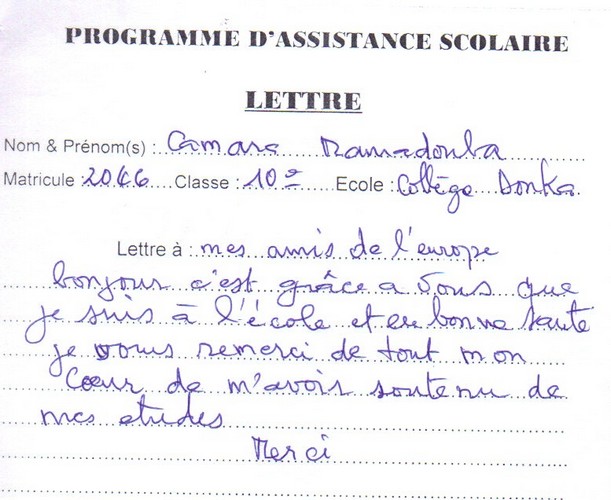 PROGRAMME D'ASSISTANCE SCOLAIRE
LETTRE
Nom & Prénom(s) : Camara Mamadouba
Matricule : 2046 Classe : 10e Ecole : Collège Donka
Lettre à : mes amis de l'europe
bonjour c'est grâce a vous que
je suis à l'école et en bonne sante
je vous remerci de tout mon
Cœur de m'avoir soutenu de
mes etudes
Merci